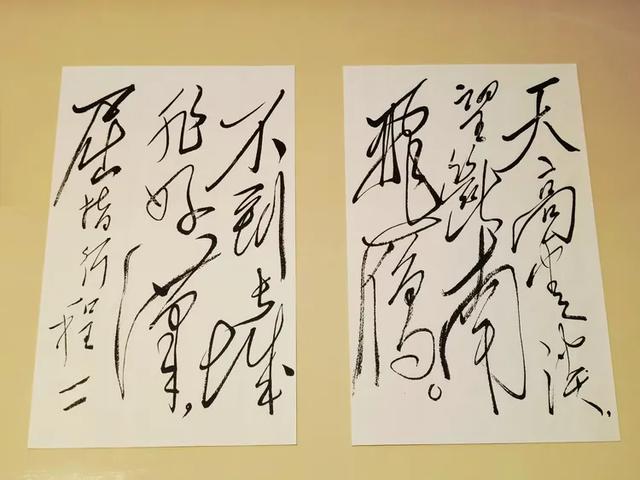 天高云淡，
望断南
飞雁。
不到长城
非好汉，
屈指行程二